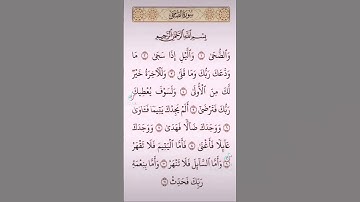 سورة الضحى
بسم الله الرحمن الرحيم
وَالضُّحَىٰ ۝ وَاللَّيْلِ إِذَا سَجَىٰ ۝ مَا
وَدَّعَكَ رَبُّكَ وَمَا قَلَىٰ ۝ وَلَلْآخِرَةُ خَيْرٌ
لَّكَ مِنَ الْأُولَىٰ ۝ وَلَسَوْفَ يُعْطِيكَ
رَبُّكَ فَتَرْضَىٰ ۝ أَلَمْ يَجِدْكَ يَتِيمًا فَآوَىٰ
۝ وَوَجَدَكَ ضَالًّا فَهَدَىٰ ۝ وَوَجَدَكَ
عَائِلًا فَأَغْنَىٰ ۝ فَأَمَّا الْيَتِيمَ فَلَا تَقْهَرْ
۝ وَأَمَّا السَّائِلَ فَلَا تَنْهَرْ ۝ وَأَمَّا بِنِعْمَةِ
رَبِّكَ فَحَدِّثْ ۝